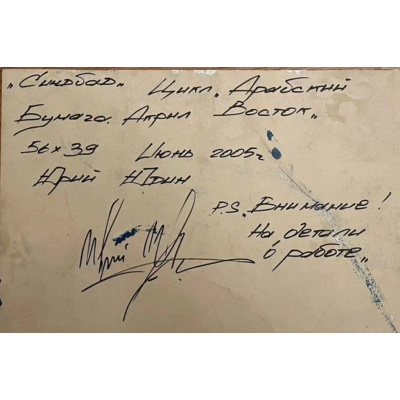 „Синдбад„ Цикл „Арабский
Бумага. Акрил Восток„
56 x 39 Июнь 2005г
Юрий Юрин
P.S „Внимание!
На детали
о работе„